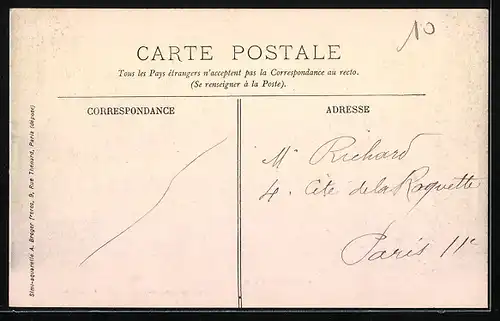 10
CARTE POSTALE
Tous les Pays étrangers n'acceptent pas la Correspondance au recto.
(Se renseigner à la Poste).
CORRESPONDANCE
ADRESSE
Mr Richard
4. Cité de la Roquette
Paris 11e
Simi-aquarelle A. Breger frères, 9, Rue Thénard, Paris (déposé)